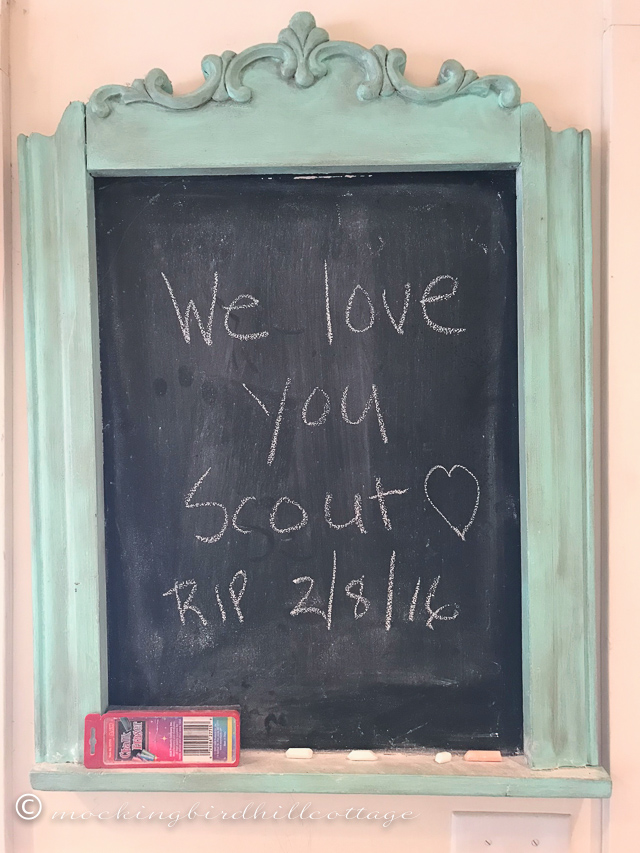 We love
you
Scout ♡
RIP 2/8/16
Chalk
Eraser
© mockingbirdhillcottage